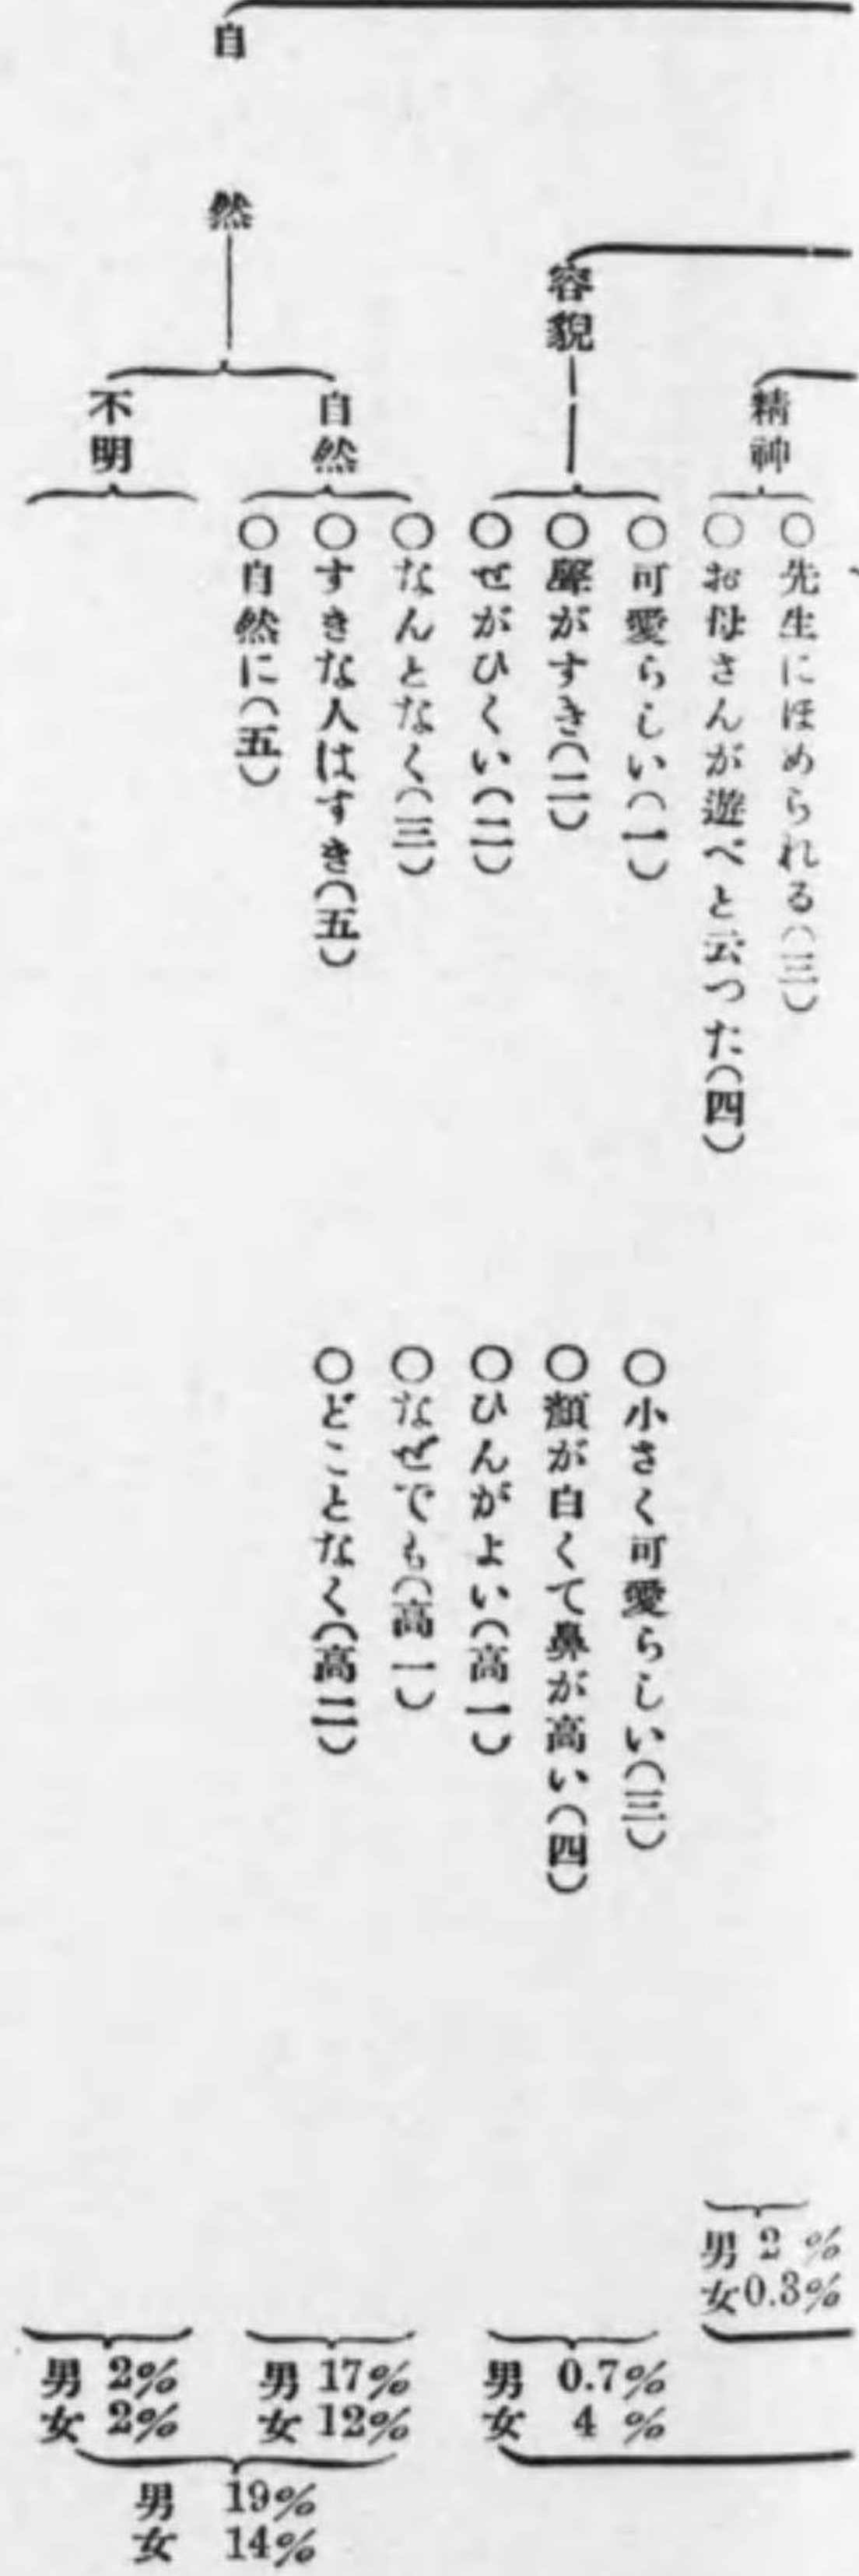 精神
○先生にほめられる(三)
○お母さんが遊べと云つた(四)
男 2 %
女 0.3%
容貌
○可愛らしい(一)
○小さく可愛らしい(三)
○聲がすき(二)
○顏が白くて鼻が高い(四)
○せがひくい(二)
○ひんがよい(高一)
男 0.7%
女 4 %
自然
自然
○なんとなく(三)
○なぜでも(高一)
○すきな人はすき(五)
○どことなく(高二)
○自然に(五)
男 17%
女 12%
不明
男 2%
女 2%
男 19%
女 14%